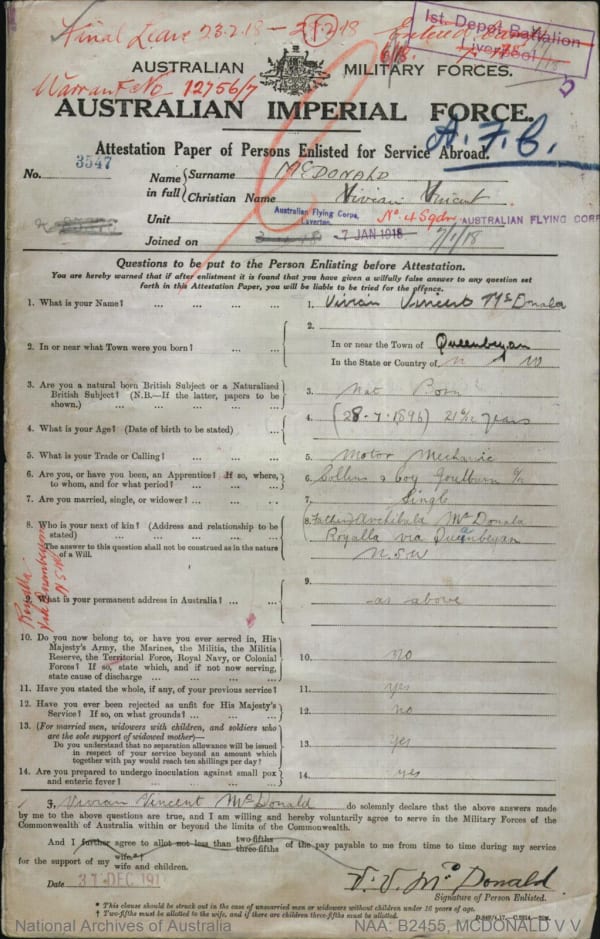 Final Leave 23.2.18 - 27.2.18
1st. Depot Battalion
Liverpool
6/18
AUSTRALIAN MILITARY FORCES.
Warrant No 12756/7
AUSTRALIAN IMPERIAL FORCE.
A.F.C.
Attestation Paper of Persons Enlisted for Service Abroad.
No. 3547
Name in full { Surname McDONALD
Christian Name Vivian Vincent
Unit Australian Flying Corps, Laverton. No. 4 Sqdn AUSTRALIAN FLYING CORP
Joined on 7 JAN 1918 7/1/18
Questions to be put to the Person Enlisting before Attestation.
You are hereby warned that if after enlistment it is found that you have given a wilfully false answer to any question set
forth in this Attestation Paper, you will be liable to be tried for the offence.
1. What is your Name? ... ... ... ... 1. Vivian Vincent McDonald
2. In or near what Town were you born? ... ... 2. In or near the Town of Queenbeyan
In the State or Country of N W
3. Are you a natural born British Subject or a Naturalised
British Subject? (N.B.—If the latter, papers to be
shown.) ... ... ... ... 3. Nat Born
4. What is your Age? (Date of birth to be stated) ... 4. (28-7-1896) 21 5/12 years
5. What is your Trade or Calling? ... ... ... 5. Motor Mechanic
6. Are you, or have you been, an Apprentice? If so, where,
to whom, and for what period? ... ... 6. Collins & Coy Goulburn
7. Are you married, single, or widower? ... ... 7. Single
8. Who is your next of kin? (Address and relationship to be
stated) ... ... ... ... 8. Father Archibald McDonald
The answer to this question shall not be construed as in the nature
of a Will. Royalla via Queanbeyan
N.S.W
Royalla
via Queanbeyan
N S W
9. What is your permanent address in Australia? ... ... 9. as above
10. Do you now belong to, or have you ever served in, His
Majesty's Army, the Marines, the Militia, the Militia
Reserve, the Territorial Force, Royal Navy, or Colonial
Forces? If so, state which, and if not now serving,
state cause of discharge ... ... ... 10. no
11. Have you stated the whole, if any, of your previous service? 11. yes
12. Have you ever been rejected as unfit for His Majesty's
Service? If so, on what grounds? ... ... 12. no
13. (For married men, widowers with children, and soldiers who
are the sole support of widowed mother)—
Do you understand that no separation allowance will be issued
in respect of your service beyond an amount which
together with pay would reach ten shillings per day? 13. yes
14. Are you prepared to undergo inoculation against small pox
and enteric fever? ... ... ... 14. yes
I, Vivian Vincent McDonald do solemnly declare that the above answers made
by me to the above questions are true, and I am willing and hereby voluntarily agree to serve in the Military Forces of the
Commonwealth of Australia within or beyond the limits of the Commonwealth.
And I further agree to allot not less than two-fifths three-fifths of the pay payable to me from time to time during my service
for the support of my wife* wife and children.
Date 31 DEC 191
V. V. McDonald
Signature of Person Enlisted.
* This clause should be struck out in the case of unmarried men or widowers without children under 16 years of age.
† Two-fifths must be allotted to the wife, and if there are children three-fifths must be allotted.
National Archives of Australia NAA: B2455, MCDONALD V V